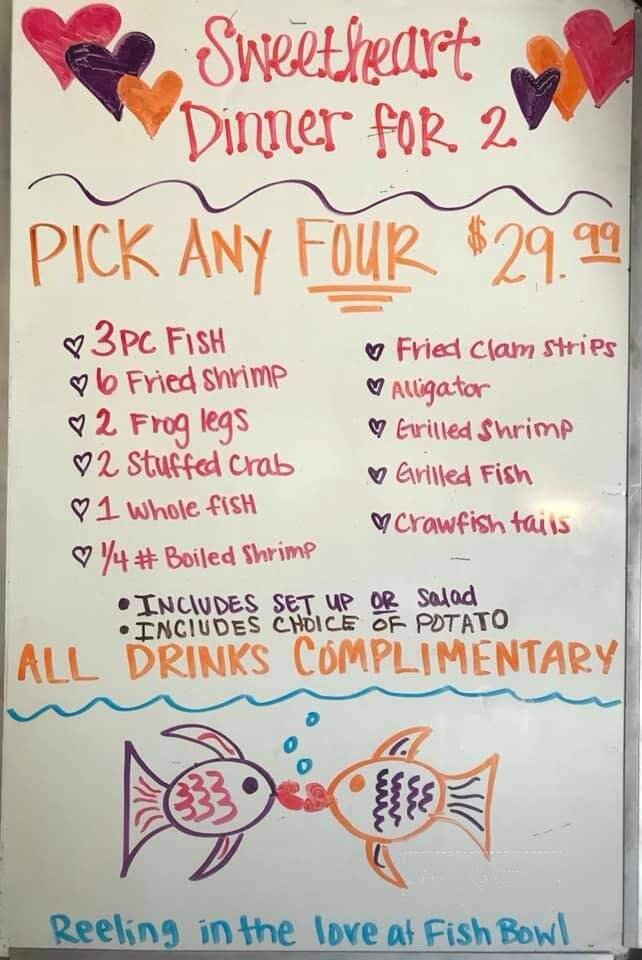 Sweetheart
Dinner for 2
PICK ANY FOUR $29.99
3PC FISH
6 Fried Shrimp
2 Frog legs
2 Stuffed Crab
1 Whole fish
1/4 # Boiled Shrimp
Fried Clam strips
Alligator
Grilled Shrimp
Grilled Fish
Crawfish tails
• INCLUDES SET UP OR Salad
• INCLUDES CHOICE OF POTATO
ALL DRINKS COMPLIMENTARY
Reeling in the love at Fish Bowl